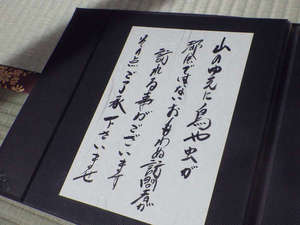 山のゆえに鳥や虫が
都会ではないおもわぬ訪問者が
訪れる事がございます
その点ご了承下さいませ